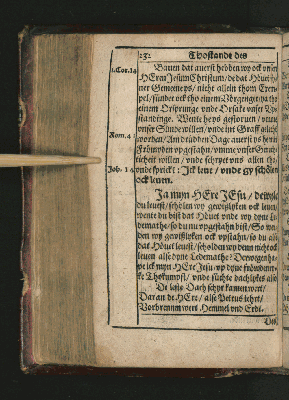 232 Thostande des
1.Cor.14 Bauen dat auerst hebben wy ock vnsen
HErrn JesumChristum/ de dat Höuet
ner Gemeene ys/ nicht allein thom Exem-
pel/ sünder ock tho einem
einem Orsprunge vnde Orsake vnser Vp-
standinge. Wente he ys gestoruen / vmme
vnser Sünde willen / vnde int Graff gelecht
Rom.4. worden/ Am drüdden Dage auerst ys he mit
Fröwden vpgestahn / vmme vnser Gerech-
ticheit willen / vnde schryet vns allen tho/
Joh. 14 vnde sprickt : Ick leue / vnde gy schölen
ock leuen.
Ja myn HEre JEsu / dewyle
du leuest/ schölen wy gewißlyken ock leuen/
wente du bist dat Höuet vnde wy dyne Le-
demathe/ so du nu vpgestahn bist/ So wer-
den wy gewißlyken ock vpstahn/ so du als
dat Höuet leuest/ schölden wy denn nicht ock
leuen alse dyne Ledemathe: Derwegen
pe ick myn HEre Jesu vp dyne
ke Thokumpst/ vnde süchte dachlykes also
De leste Dach schyr kamen wert/
Daran de HEre / alse Petrus lehrt/
Vorbrennen wert Hemmel vnd Erde.